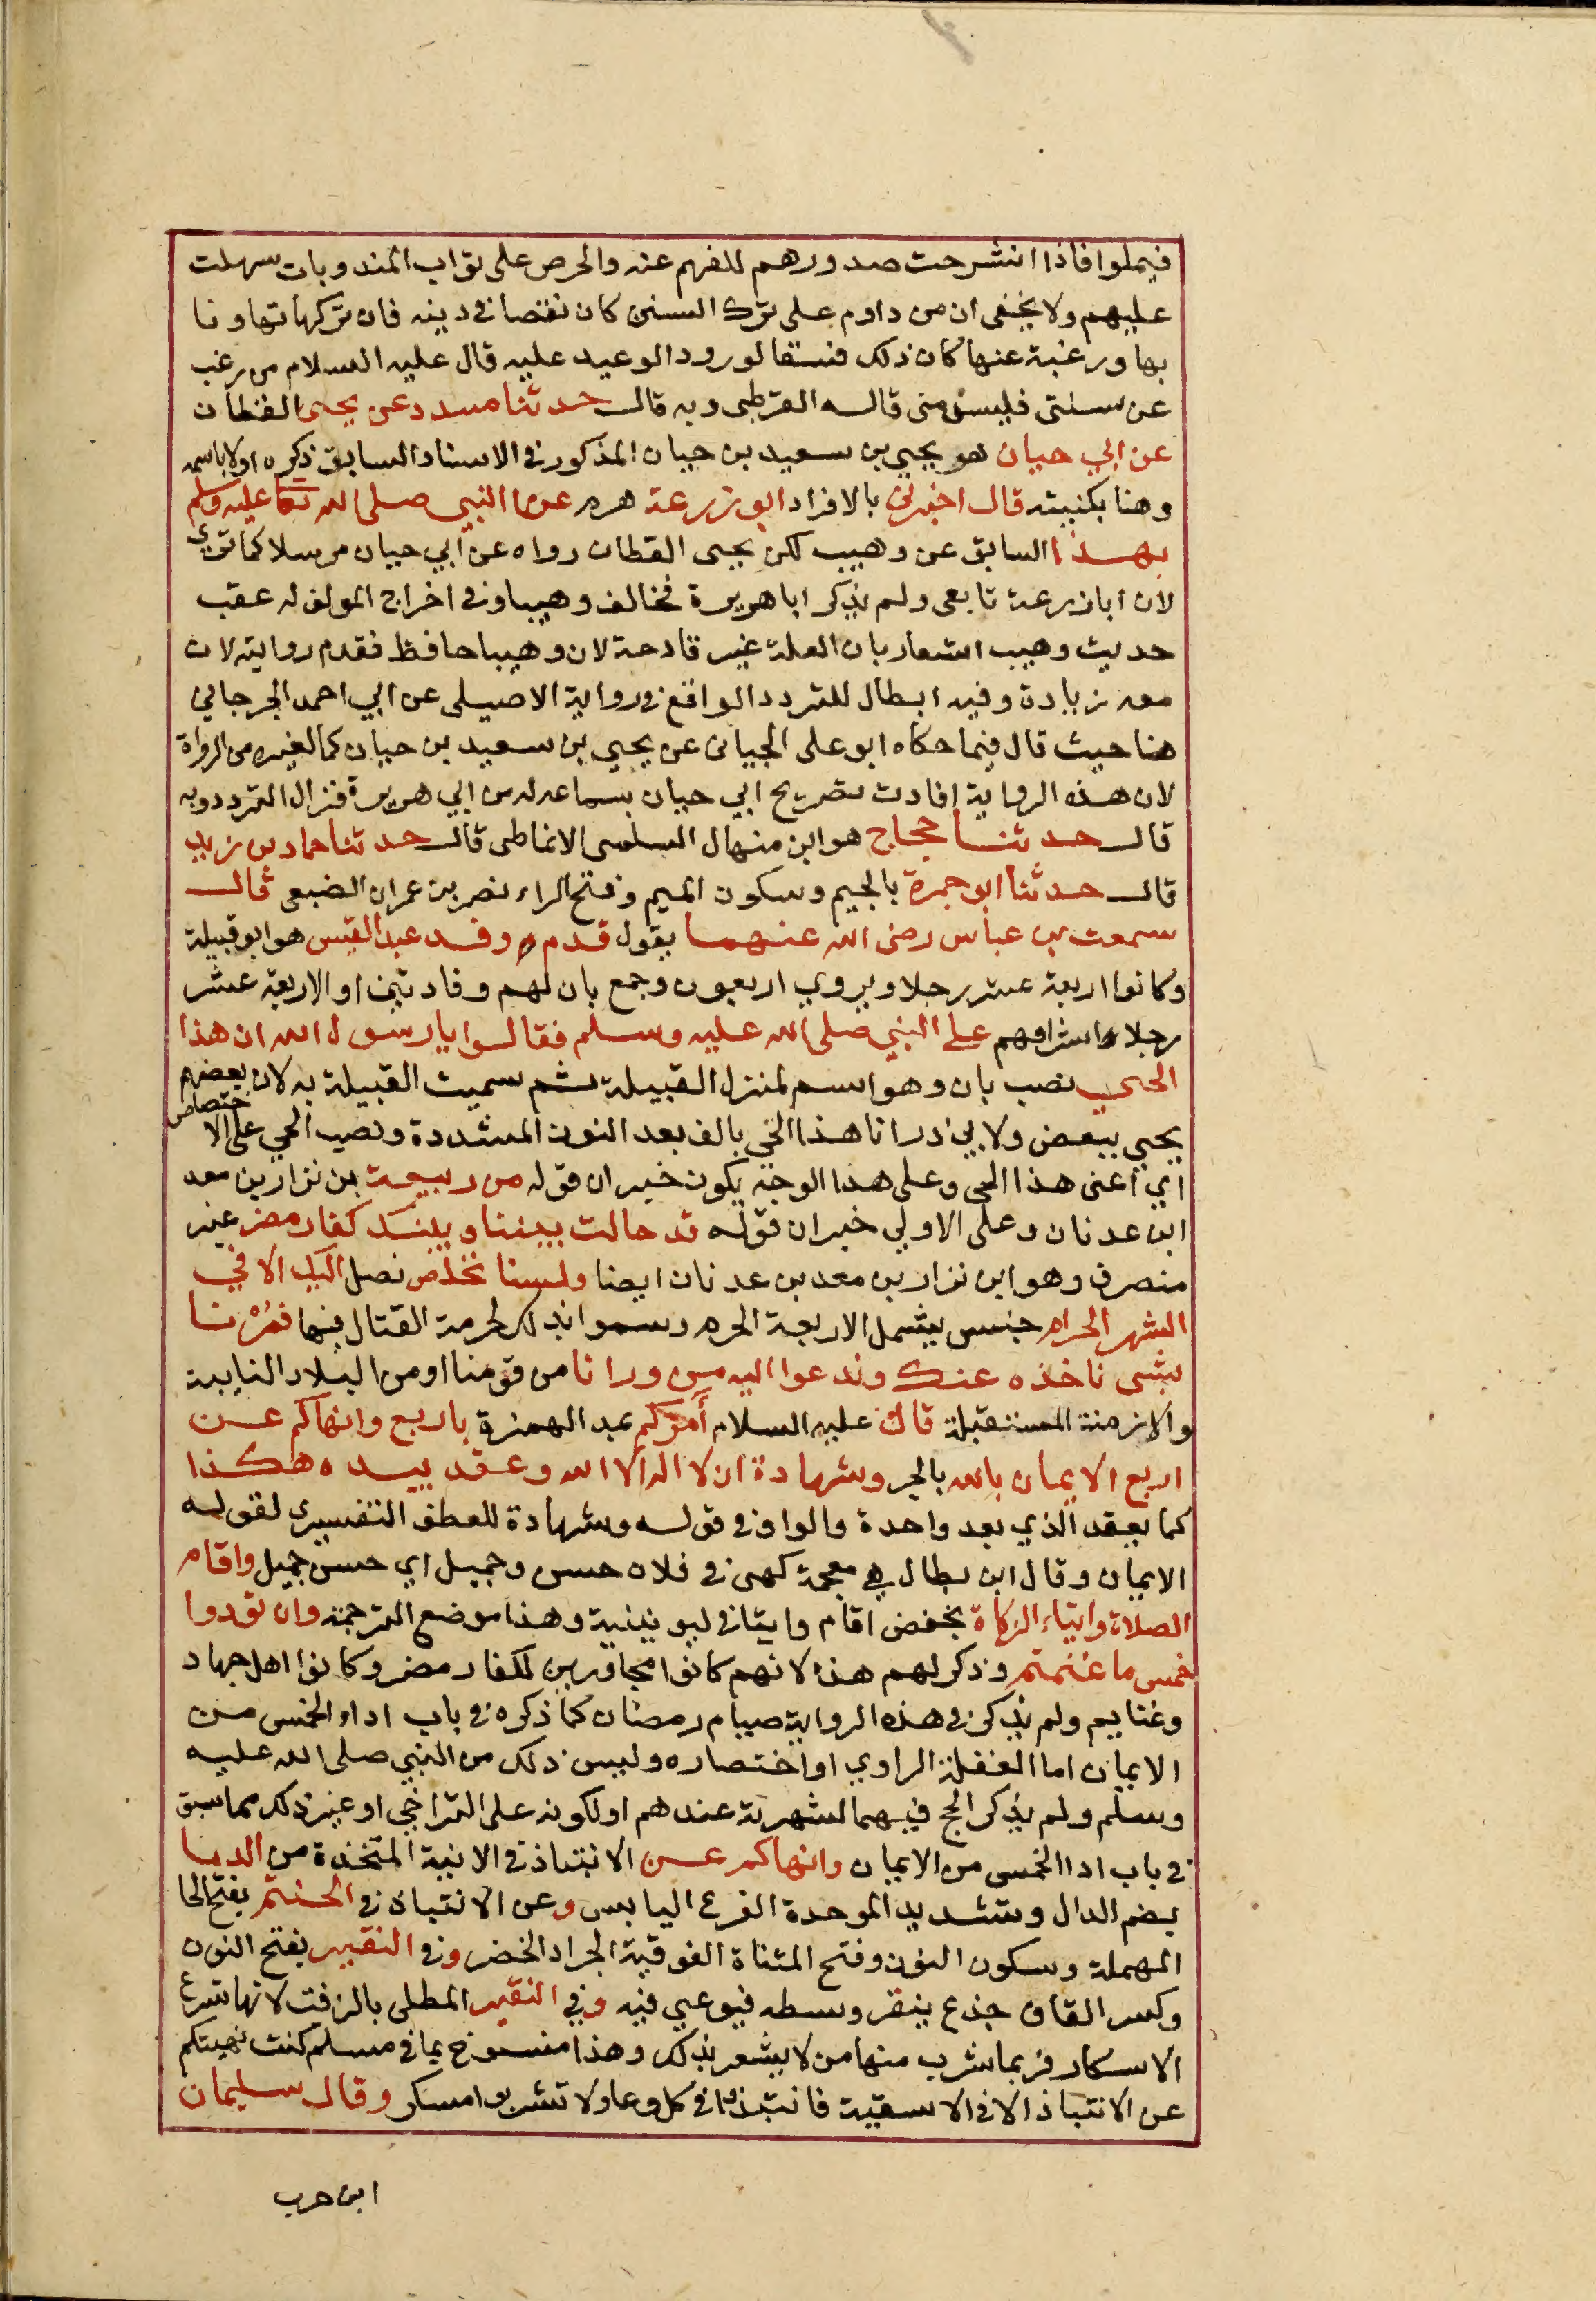 فيملوا فاذا انشرحت صدورهم للفهم عنه والحرص على ثواب المندوبات سهلت
عليهم ولا يخفى ان من داوم على ترك السنن كان نقصا في دينه فان تركها تهاونا
بها ورغبة عنها كان ذلك فسقا لورود الوعيد عليه قال عليه السلام من رغب
عن سنتي فليس مني قاله القرطبي وبه قال حدثنا مسدد عن يحيى القطان
عن ابي حيان هو يحيي بن سعيد بن حيان المذكور في الاسناد السابق ذكره اولا باسمه
وهنا بكنيته قال اخبرني بالافراد ابو زرعة هرم عن النبي صلى الله تعا عليه وسلم
بهذا السابق عن وهيب لكن يحيى القطان رواه عن ابي حيان مرسلا كما ترى
لان ابا زرعة تابعي ولم يذكر ابا هريرة فخالف وهيبا وفي اخراج المولف له عقب
حديث وهيب اشعار بان العلة غير قادحة لان وهيبا حافظ فقدم روايته لان
معه زيادة وفيه ابطال للتردد الواقع في رواية الاصيلي عن ابي احمد الجرجاني
هنا حيث قال فيما حكاه ابو على الجياني عن يحيي بن سعيد بن حيان كما لغيره من الرواة
لان هذه الرواية افادت تصريح ابي حيان بسماعه له من ابي هريرة فزال التردد وبه
قال حدثنا حجاج هو ابن منهال السلمي الانماطي قال حدثنا حماد بن زيد
قال حدثنا ابو جمرة بالجيم وسكون الميم وفتح الراء نصر بن عمران الضبعي قال
سمعت بن عباس رضي الله عنهما يقول قدم وفد عبد القيس هو ابو قبيلة
وكانوا اربعة عشر رجلا ويروي اربعون وجمع بان لهم وفادتين او الاربعة عشر
رجلا اشرافهم على النبي صلى الله عليه وسلم فقالوا يا رسول الله ان هذا
الحي نصب بان وهو اسم لمنزل القبيلة ثم سميت القبيلة به لان بعضهم
يحيي ببعض ولابي ذر انا هذا الحي بالف بعد النون المشددة ونصب الحي على الاختصاص
اي اعني هذا الحي وعلى هذا الوجه يكون خبر ان قوله من ربيعة بن نزار بن معد
ابن عدنان وعلى الاولي خبر ان قوله قد حالت بيننا وبينك كفار مضر غير
منصرف وهو ابن نزار بن معد بن عدنان ايضا ولسنا نخلص نصل اليك الا في
الشهر الحرام جنس يشمل الاربعة الحرم وسموا بذلك لحرمة القتال فيها فمُرْنا
بشى ناخذه عنك وندعوا اليه من ورانا من قومنا او من البلاد النايية
والازمنة المستقبلة قال عليه السلام أمركم بمد الهمزة باربع وانهاكم عن
اربع الايمان بالله بالجر وشهادة ان لا اله الا الله وعقد بيده هكذا
كما يعقد الذي يعد واحدة والواو في قوله وشهادة للعطف التفسيري لقوله
الايمان وقال ابن بطال هي معجمة كهي في فلان حسن وجميل اي حسن جميل واقام
الصلاة وايتاء الزكاة بخفض اقام وايتا في ليونينية وهذا موضع الترجمة وان تودوا
خمس ما غنمتم وذكر لهم هذه لانهم كانوا مجاورين لكفار مضر وكانوا اهل جهاد
وغنايم ولم يذكر في هذه الرواية صيام رمضان كما ذكره في باب اداء الخمس من
الايمان اما الغفلة الراوي او اختصاره وليس ذلك من النبي صلى الله عليه
وسلم ولم يذكر الحج فيهما لشهرته عندهم او لكونه على التراخي او غير ذلك مما سبق
في باب ادا الخمس من الايمان وانهاكم عن الانتباذ في الانية المتخذة من الدبا
بضم الدال وتشديد الموحدة القرع اليابس وعن الانتباذ في الحنتم بفتح الحا
المهملة وسكون النون وفتح المثناة الفوقية الجرار الخضر وفي النقير بفتح النون
وكسر القاف جذع ينقر وسطه فيوعي فيه وفي النقير المطلى بالزفت لانها تسرع
الاسكار فربما شرب منها من لا يشعر بذلك وهذا منسوخ بما في مسلم كنت نهيتكم
عن الانتباذ الا في الاسقية فانتبذوا في كل وعا ولا تشربوا مسكر وقال سليمان
ابن حرب